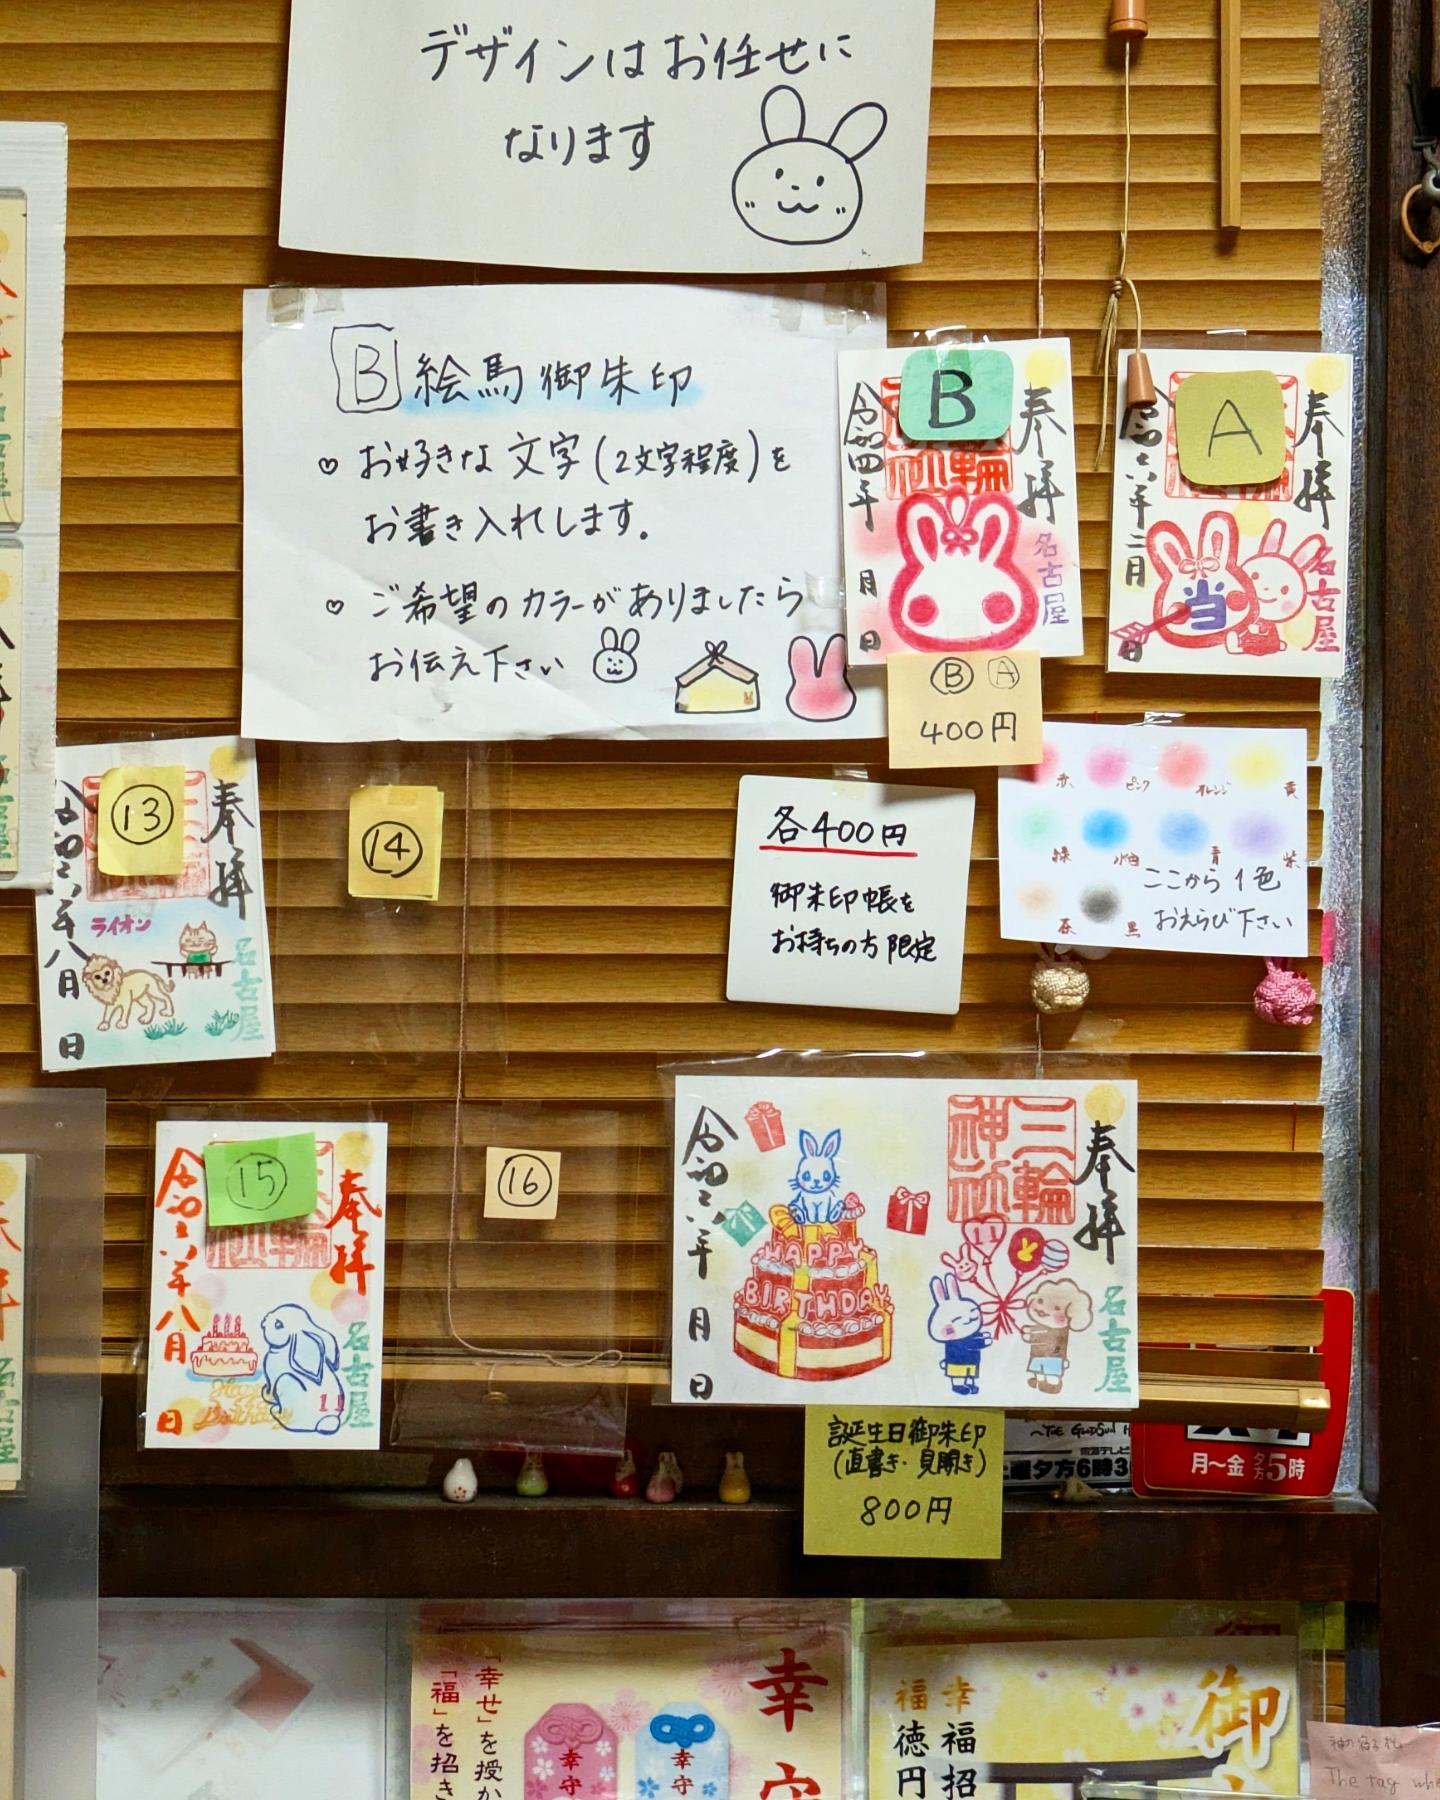 デザインはお任せに
なります
B 絵馬御朱印
♡ お好きな文字(2文字程度)を
お書き入れします。
♡ ご希望のカラーがありましたら
お伝え下さい
B
奉拝
三輪神社
名古屋
令和四年 月 日
A
奉拝
名古屋
当
令和六年二月 日
Ⓑ Ⓐ
400円
赤 ピンク オレンジ 黄
緑 水色 青 紫
茶 黒
ここから1色
おえらび下さい
各400円
御朱印帳を
お持ちの方限定
⑬
奉拝
ライオン
名古屋
令和六年八月 日
⑭
⑮
奉拝
名古屋
令和六年八月 日
Happy
Birthday
11
⑯
奉拝
三輪神社
名古屋
11
HAPPY
BIRTHDAY
令和六年 月 日
誕生日御朱印
(直書き・見開き)
800円
~THE GOODSUN
東海テレビ
曜夕方6時3
月〜金 夕方5時
幸守
「幸せ」を授か
「福」を招き
幸守
幸守
御
幸福招
福徳円
The tag whe